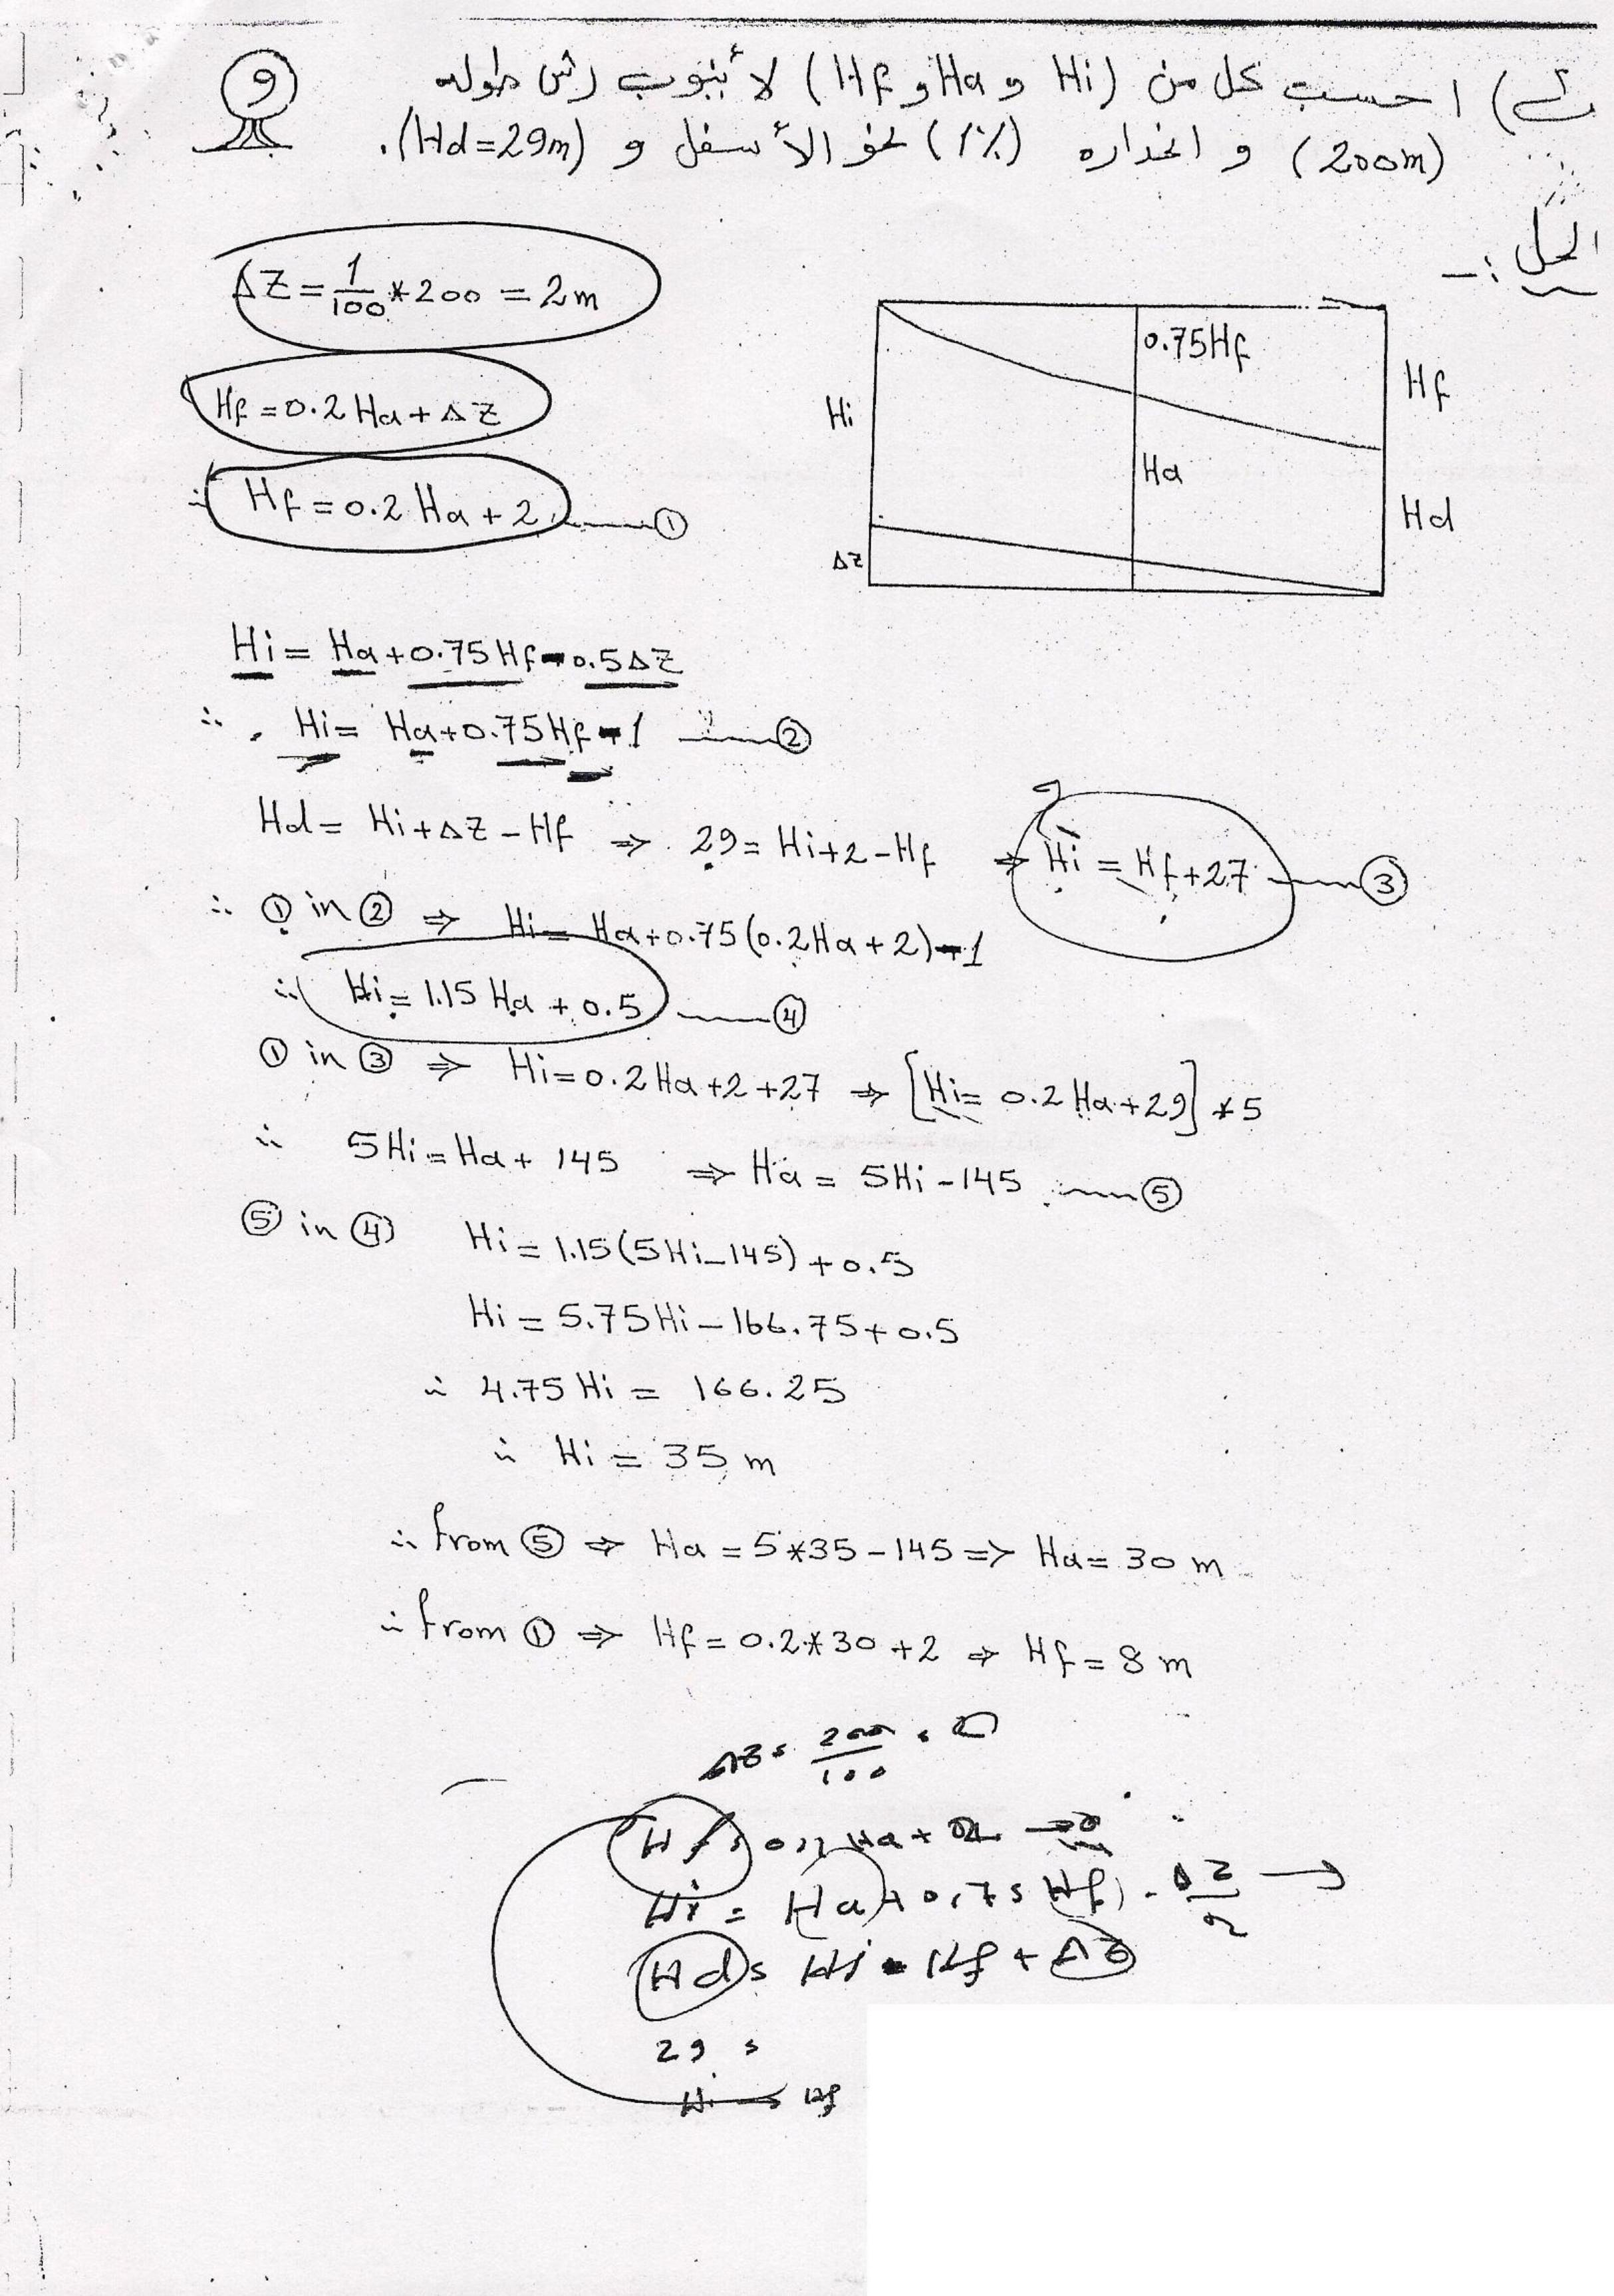 مثال) احسب كل من (Hi و Ha و Hf) لأنبوب رش طوله
(200m) و انحداره (1%) نحو الأسفل و (Hd=29m).
9
الحل :-
ΔZ = 1/100 * 200 = 2m
Hf = 0.2 Ha + ΔZ
∴ Hf = 0.2 Ha + 2 ①
0.75Hf
Hf
Hi
Ha
Hd
ΔZ
Hi = Ha + 0.75 Hf - 0.5 ΔZ
∴ Hi = Ha + 0.75 Hf - 1 ②
Hd = Hi + ΔZ - Hf ⇒ 29 = Hi + 2 - Hf ⇒ Hi = Hf + 27 ③
∴ ① in ② ⇒ Hi = Ha + 0.75 (0.2 Ha + 2) - 1
∴ Hi = 1.15 Ha + 0.5 ④
① in ③ ⇒ Hi = 0.2 Ha + 2 + 27 ⇒ [Hi = 0.2 Ha + 29] * 5
∴ 5Hi = Ha + 145 ⇒ Ha = 5Hi - 145 ⑤
⑤ in ④ Hi = 1.15 (5Hi - 145) + 0.5
Hi = 5.75Hi - 166.75 + 0.5
∴ 4.75 Hi = 166.25
∴ Hi = 35 m
∴ from ⑤ ⇒ Ha = 5*35 - 145 ⇒ Ha = 30 m
∴ from ① ⇒ Hf = 0.2*30 + 2 ⇒ Hf = 8 m
ΔZ = 200/100 =
Hf = 0,2 Ha + ΔZ
Hi = Ha + 0,75 Hf - ΔZ/2 →
Hd = Hi - Hf + ΔZ
29 =
Hi = Hf